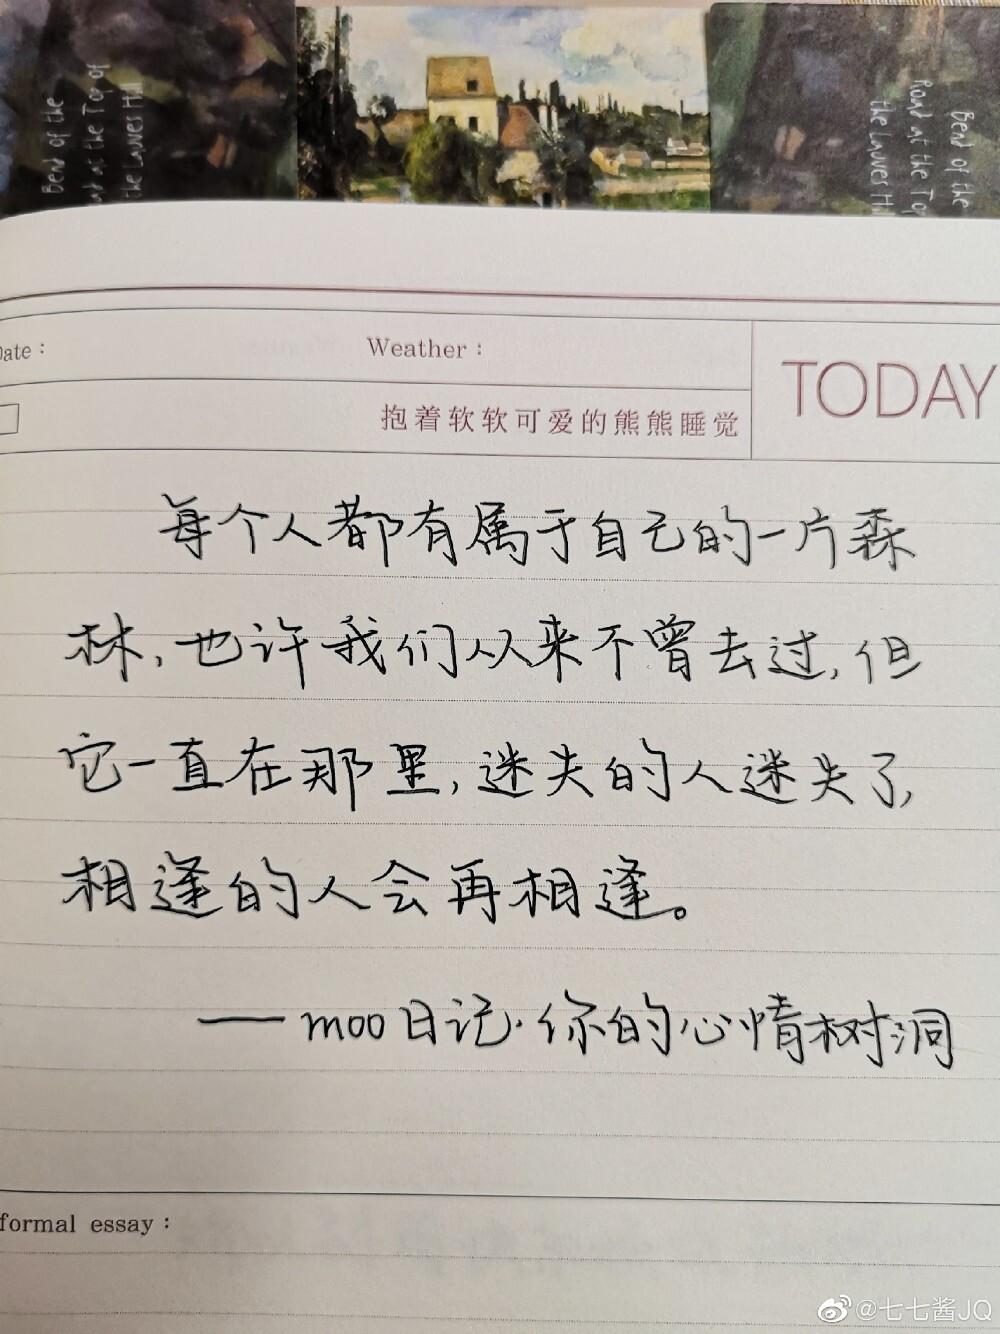 Bend of the
Road at the Top of
the Lauves Hill
Bend of the
Road at the Top
the Lauves Hil
Date：
Weather：
TODAY
抱着软软可爱的熊熊睡觉
每个人都有属于自己的一片森
林,也许我们从来不曾去过,但
它一直在那里,迷失的人迷失了,
相逢的人会再相逢。
——moo日记·你的心情树洞
formal essay：
@七七酱JQ